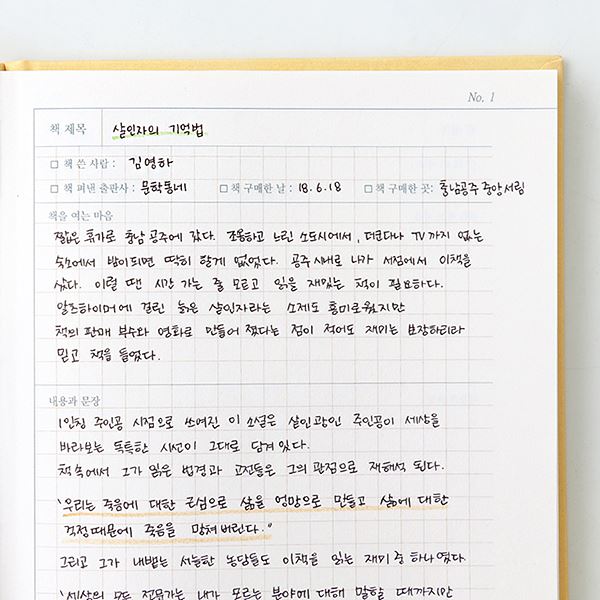 No. 1
책 제목 살인자의 기억법
□ 책 쓴 사람 : 김영하
□ 책 펴낸 출판사 : 문학동네 □ 책 구매한 날 : 18.6.18 □ 책 구매한 곳: 충남공주 중앙서림
책을 여는 마음
짧은 휴가로 충남 공주에 갔다. 조용하고 느린 소도시에서, 더군다나 TV까지 없는
숙소에서 밤이되면 딱히 할게 없었다. 공주 시내로 나가 서점에서 이책을
샀다. 이럴 땐 시간 가는 줄 모르고 읽을 재밌는 책이 필요하다.
알츠하이머에 걸린 늙은 살인자라는 소제도 흥미로웠지만
책의 판매 부수와 영화로 만들어졌다는 점이 적어도 재미는 보장하리라
믿고 책을 들었다.
내용과 문장
1인칭 주인공 시점으로 쓰여진 이 소설은 살인광인 주인공이 세상을
바라보는 독특한 시선이 그대로 담겨있다.
책속에서 그가 읽은 반경과 고전들은 그의 관점으로 재해석 된다.
"우리는 죽음에 대한 근심으로 삶을 엉망으로 만들고 삶에 대한
걱정때문에 죽음을 망쳐버린다."
그리고 그가 내뱉는 서늘한 농담들도 이책을 읽는 재미 중 하나였다.
"세상의 모든 전문가는 내가 모르는 분야에 대해 말할 때까지만